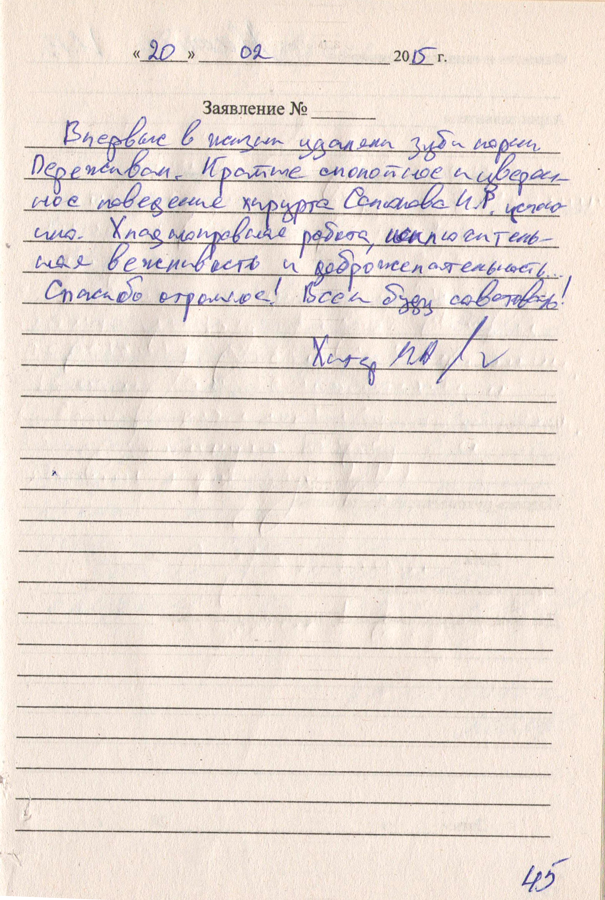 « 20 » 02 2015 г.
Заявление №
Впервые в жизни удаляли зуб
Переживал. Крайне спокойное и уверен-
ное поведение хирурга
Хладнокровная работа, исключитель-
ная вежливость и доброжелательность...
Спасибо огромное! Всем буду советовать!
45